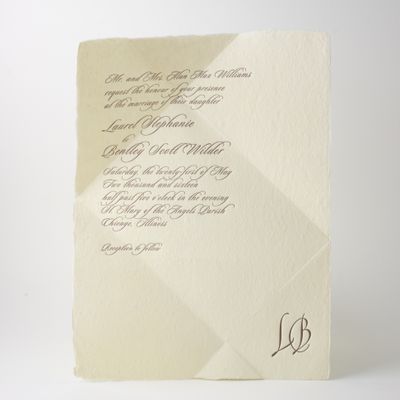 Mr. and Mrs. Alan Max Williams
request the honour of your presence
at the marriage of their daughter
Laurel Stephanie
to
Bentley Scott Wilder
Saturday, the twenty-first of May
Two thousand and sixteen
half past five o'clock in the evening
St. Mary of the Angels Parish
Chicago, Illinois
Reception to follow
LB